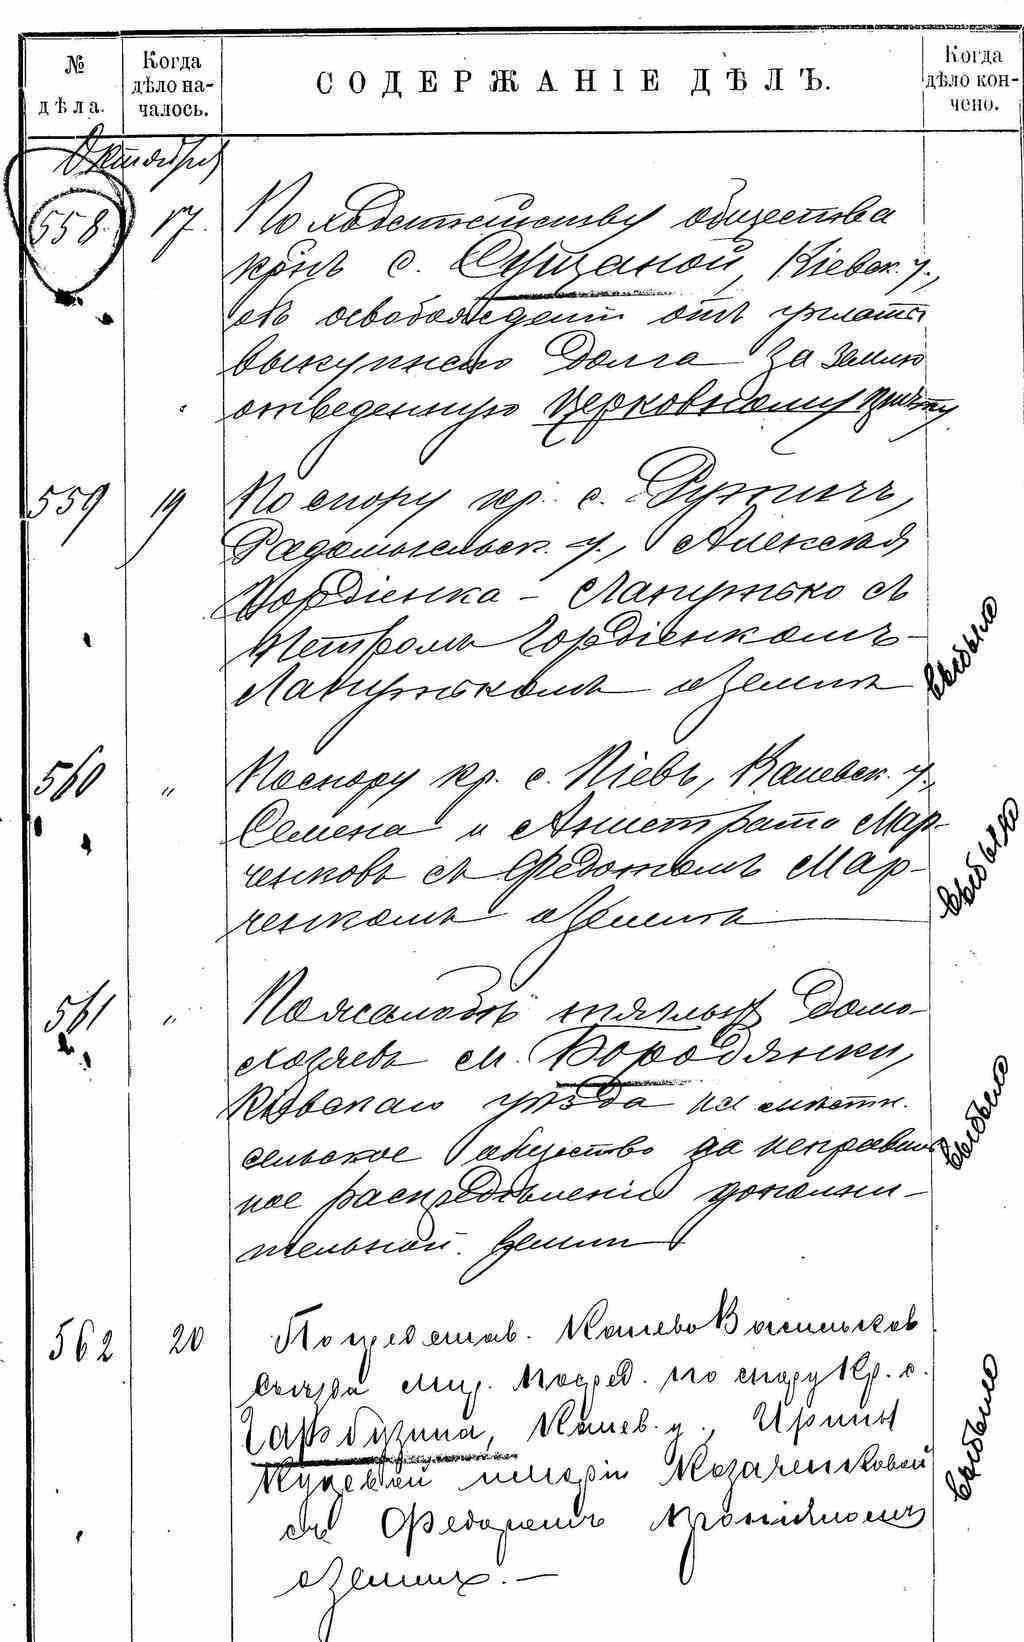 № дѣла.
Когда дѣло на-чалось.
СОДЕРЖАНІЕ ДѢЛЪ.
Когда дѣло кон-чено.
Октября
558. 17. По ходатайству общества
крнъ с. Сущаной, Кіевск. у.,
объ освобожденіи отъ уплаты
выкупного долга за землю
отведенную церковному причту
559 19 По спору кр. с.
Радомысльск. у., Алексѣя
Гордіенка - Лапутько съ
Петромъ Гордіенкомъ-
Лапутькомъ о землѣ
выбыло
560 " По спору кр. с. Пієвъ, Каневск. у.,
Семена и Анистрата Мар-
ченковъ съ Федотомъ Мар-
ченкомъ о землѣ
выбыло
561 " По жалобѣ домо-
хозяевъ м. Бородянки,
Кіевскаго уѣзда на мѣстн.
сельское общество за неправиль
ное распредѣленіе дополни-
тельной земли
выбыло
562 20 По представ. Канево Васильков
Съѣзда Мир. Посред. по спору Кр. с.
Гарбузина, Канев. у., Ирины
Козаченковой
съ Федоромъ
о землѣ. —
выбыло